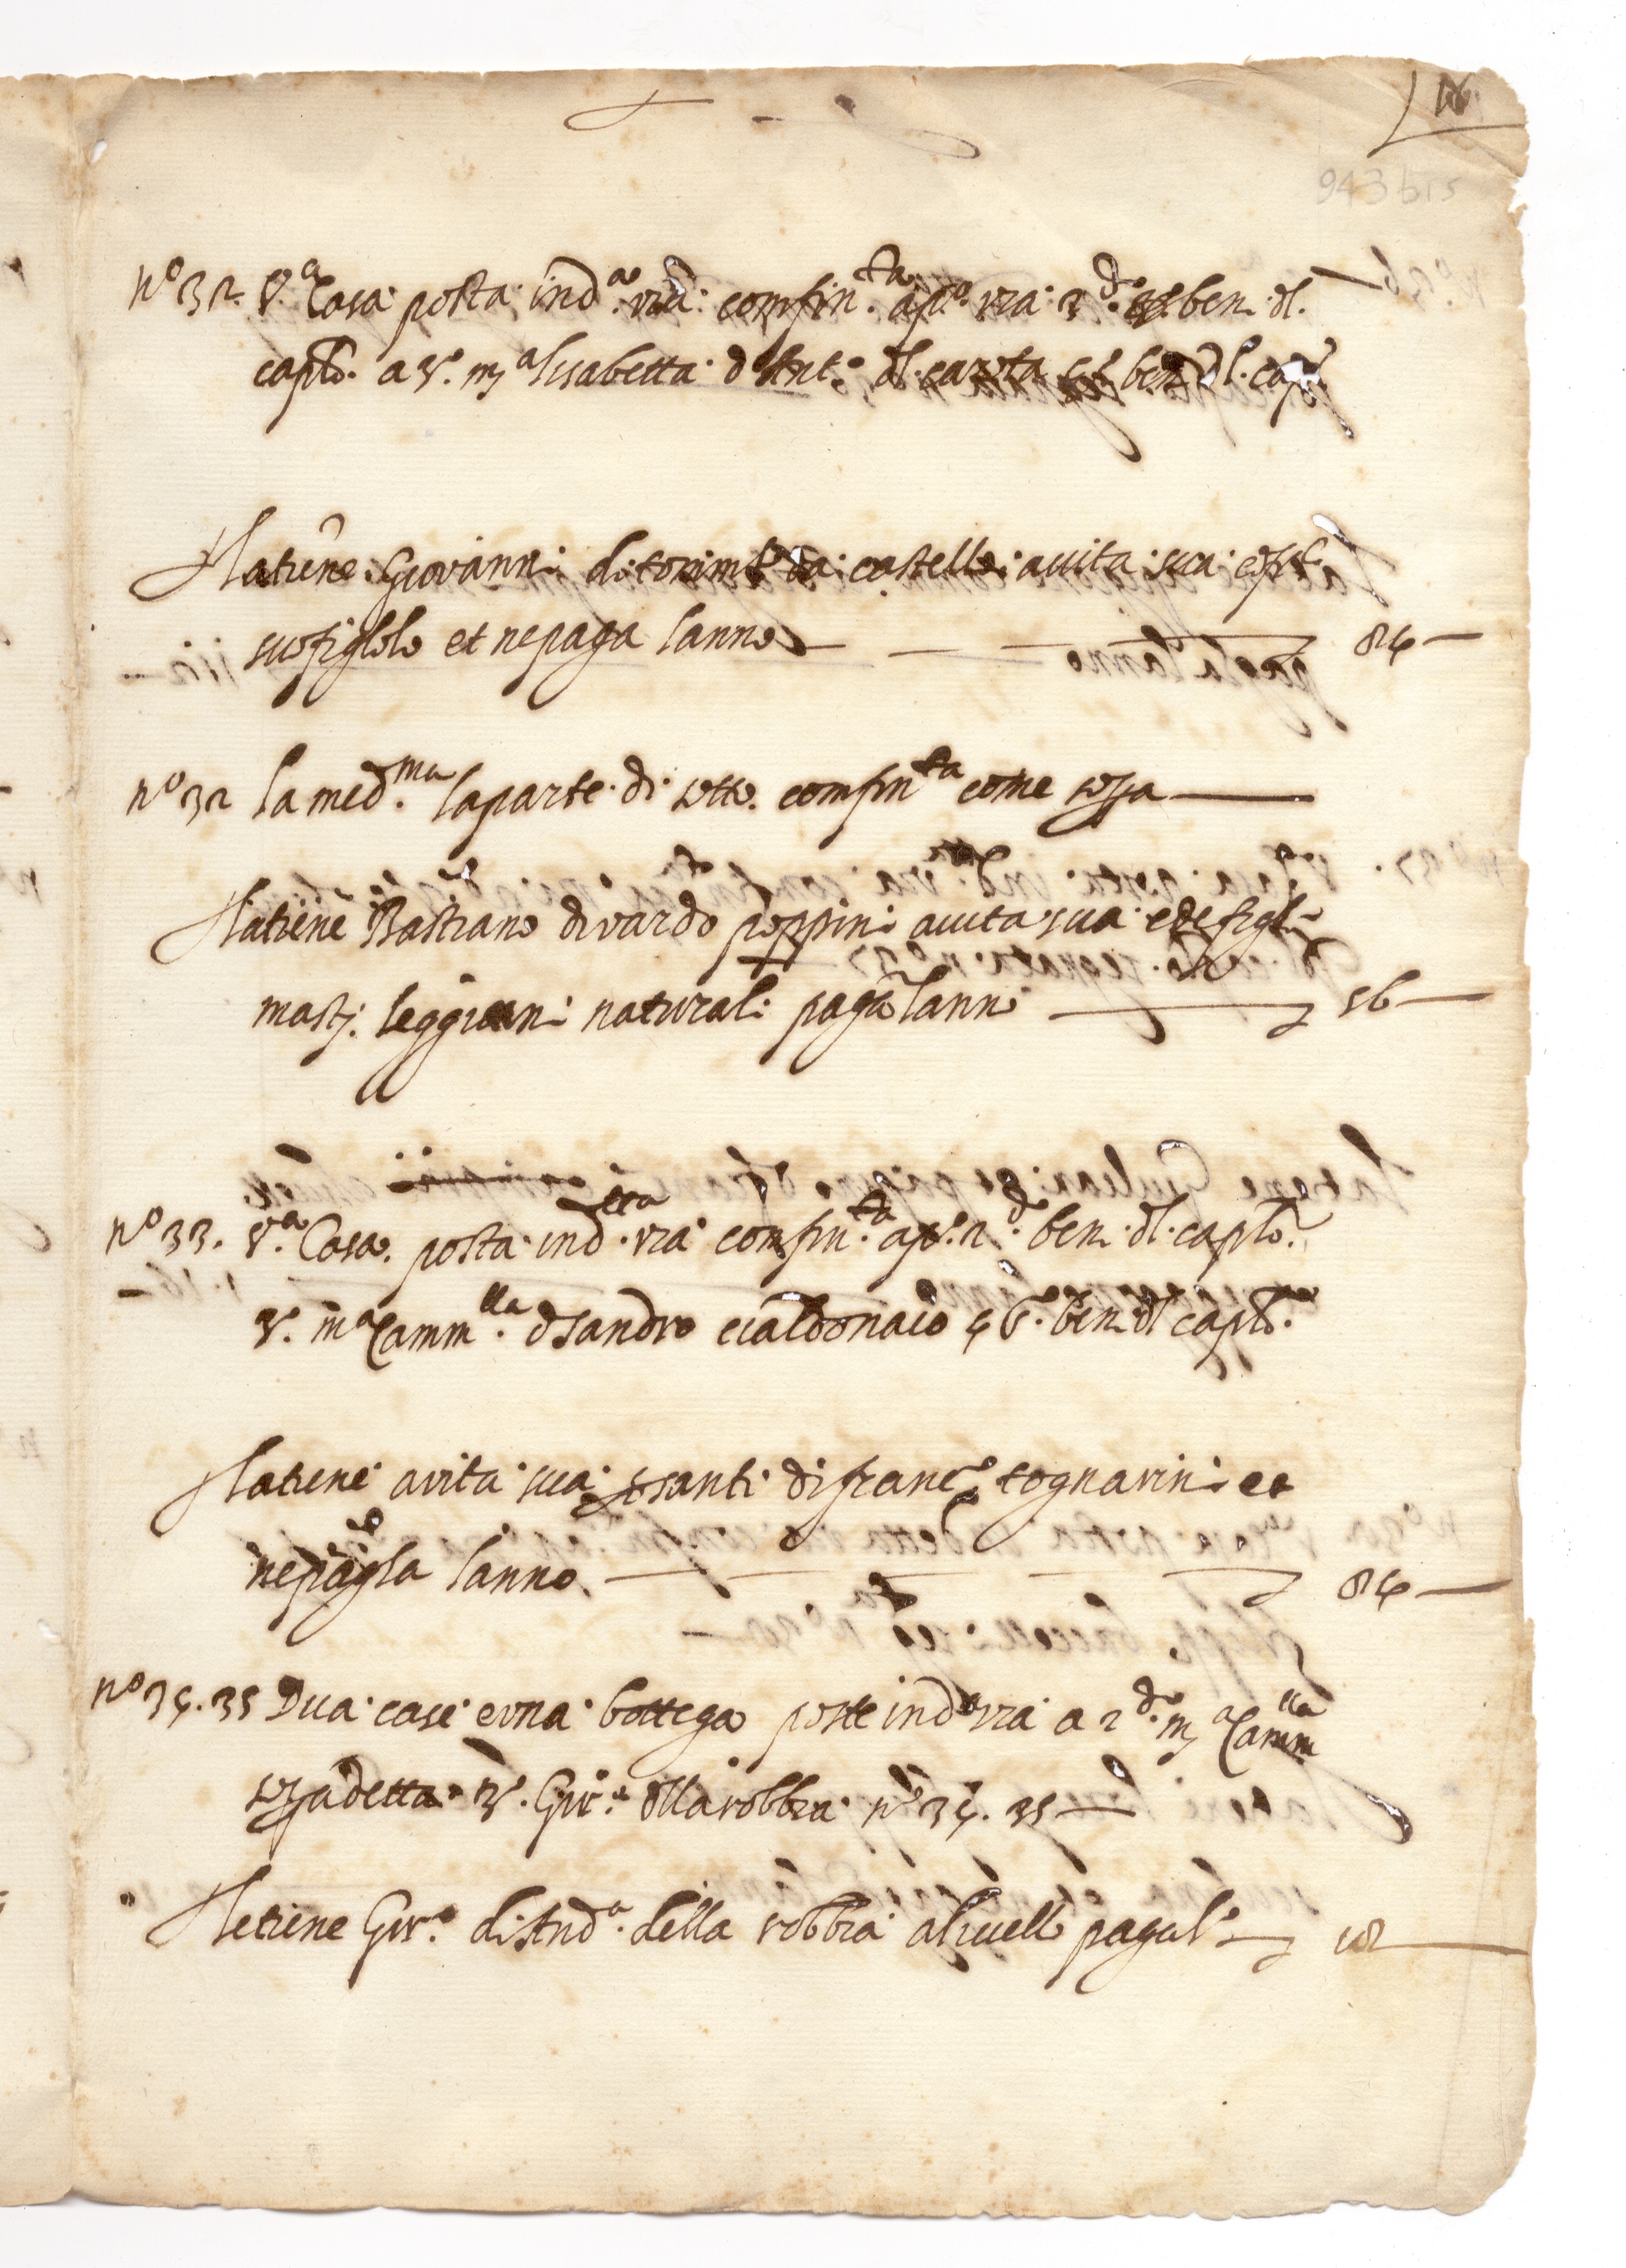 943 bis
nº 32. Vª Casa posta indª via confinta apº via 2dº ben. dl.
caplo. a 3º. mª lisabetta d Antº dl ben dl. caplo
Natiene Giovanni di da castello avita sua
suo figlolo et nepaga lanno 84
nº 32 la medma laparte di sotto. confinta come sopa
Natiene Bastiano divardo poppini avita sua figli
mastj. leggitani naturali pagha lanno 56
nº 33. Vª Casa. posta indetta via confinta apº. 2dº ben. dl. caplo.
3º. mª Cammlla. d sandro cialdonaio 4º ben dl caplo.
latiene avita sua santi difrancº tognarini et
nepagha lanno. 84
nº 34. 35 Dua case e una bottega poste indª via a 2dº. mª Cammlla
sopadetta 3º. Girº dllarobbia nº 34. 35
Netiene Girº. di Andª. della robbia alivello pagal